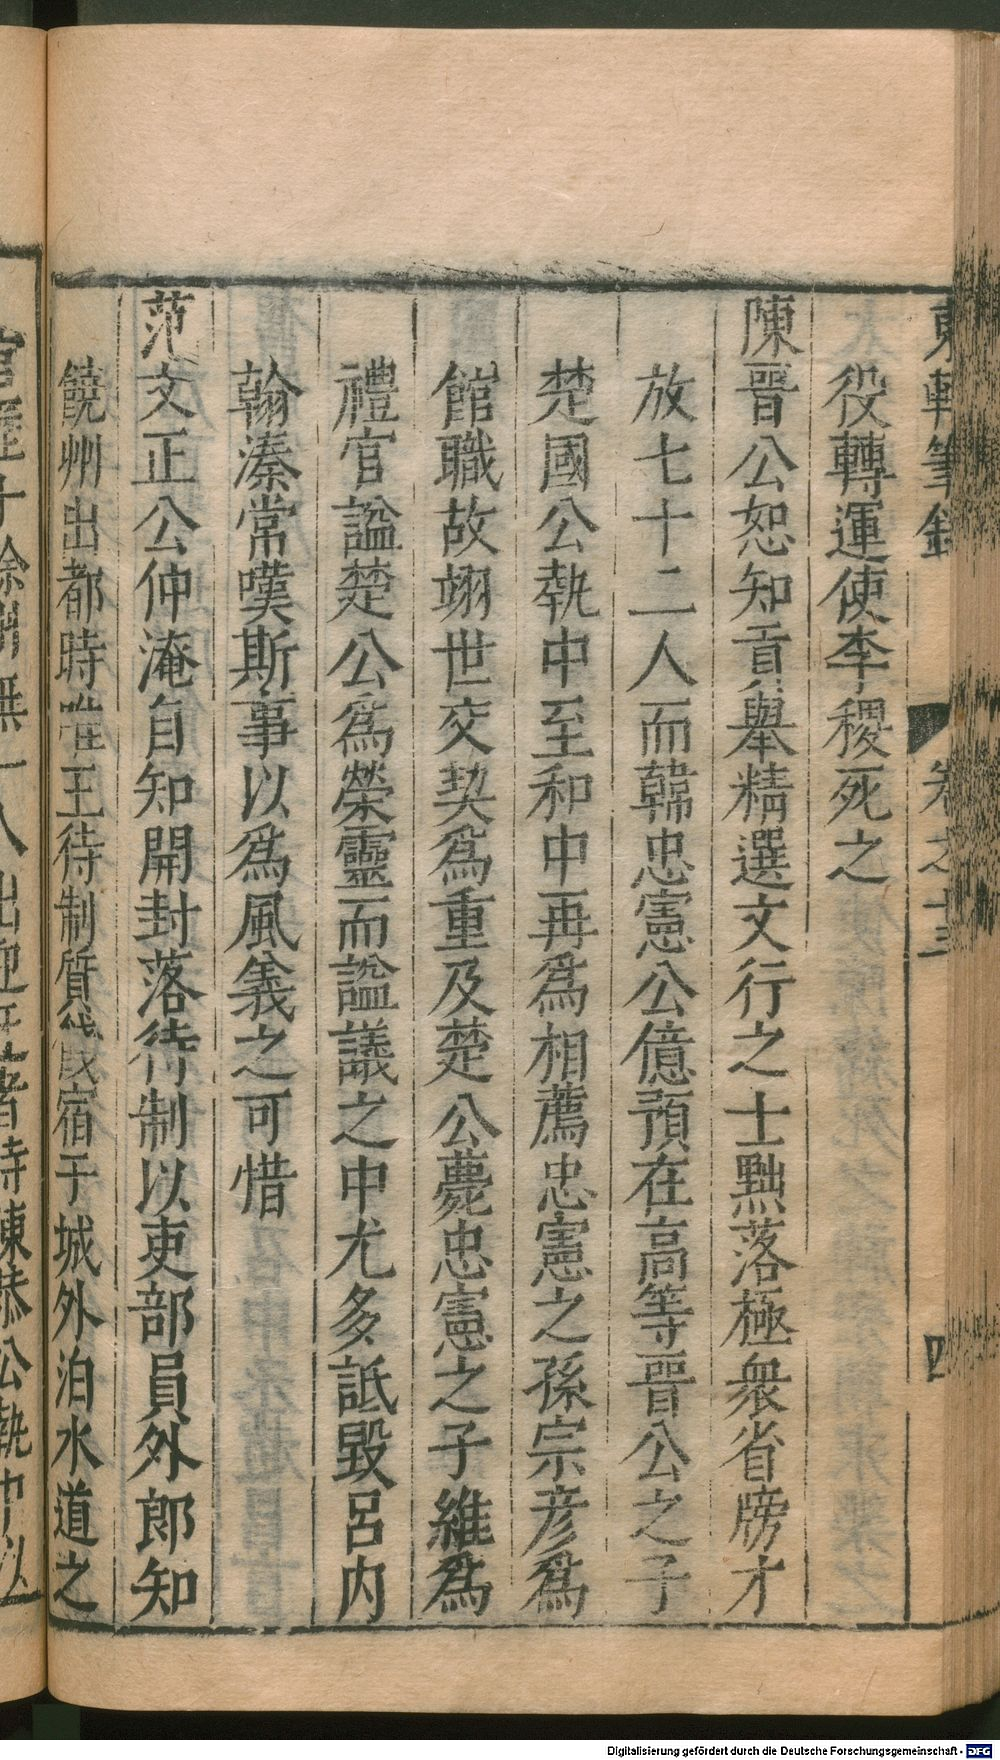 東軒筆錄 卷之十三 四
役轉運使李稷死之
陳晉公恕知貢舉精選文行之士黜落極衆省牓才
放七十二人而韓忠憲公億預在高等晉公之子
楚國公執中至和中再爲相薦忠憲之孫宗彦爲
館職故翊世交契爲重及楚公薨忠憲之子維爲
禮官謚楚公爲榮靈而謚議之中尤多詆毀呂内
翰溱常嘆斯事以爲風義之可惜
范文正公仲淹自知開封落待制以吏部員外郎知
饒州出都時唯王待制質餞宿于城外泊水道之
官歷十餘州無一人出迎者時陳恭公執中以
Digitalisierung gefördert durch die Deutsche Forschungsgemeinschaft - DFG